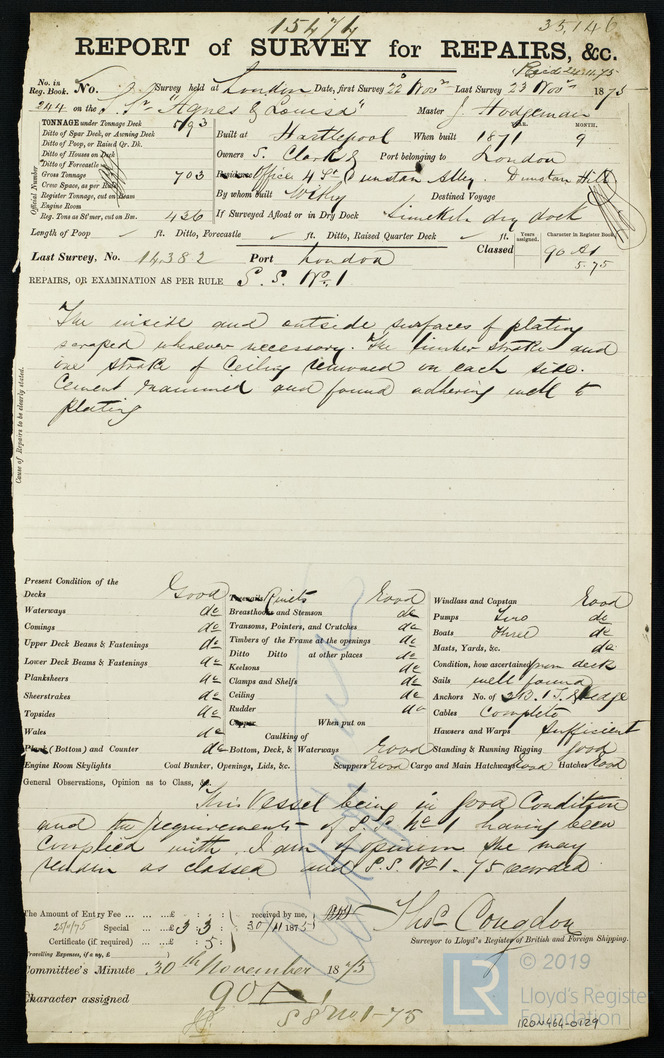 15474
35,146
REPORT of SURVEY for REPAIRS, &c.
Paid
No. in Reg. Book. No. Survey held at London Date, first Survey 22 Novr Last Survey 23 Novr 1875
244 on the S. Sr "Agnes & Louisa" Master J. Hodgeman
YEAR. MONTH.
TONNAGE under Tonnage Deck 593
Ditto of Spar Deck, or Awning Deck
Ditto of Poop, or Raised Qr. Dk.
Ditto of Houses on Deck
Ditto of Forecastle
Gross Tonnage 703
Crew Space, as per Rule
Register Tonnage, cut on Beam
Engine Room
Reg. Tons as St'mer, cut on Bm. 436
Official Number
Built at Hartlepool When built 1871 9
Owners S. Clark & Port belonging to London
Residence Office 4 St Dunstan Alley. Dunstan Hill
By whom built Withy Destined Voyage
If Surveyed Afloat or in Dry Dock Limekiln dry dock
Length of Poop ft. Ditto, Forecastle ft. Ditto, Raised Quarter Deck ft.
Years assigned. Character in Register Book
Last Survey, No. 14,382 Port London Classed 90 A1
5.75
REPAIRS, OR EXAMINATION AS PER RULE S. S. No. 1
The inside and outside surfaces of plating
scraped wherever necessary. The limber strake and
one strake of Ceiling removed on each side.
Cement examined and found adhering well to
plating
Cause of Repairs to be clearly stated.
Present Condition of the
Decks Good
Waterways do
Comings do
Upper Deck Beams & Fastenings do
Lower Deck Beams & Fastenings do
Planksheers do
Sheerstrakes do
Topsides do
Wales do
Plank (Bottom) and Counter do
Engine Room Skylights
Treenails Rivets Good
Breasthooks and Stemson do
Transoms, Pointers, and Crutches do
Timbers of the Frame at the openings do
Ditto Ditto at other places do
Keelsons do
Clamps and Shelfs do
Ceiling do
Rudder do
Copper When put on
Caulking of
Bottom, Deck, & Waterways Good
Coal Bunker, Openings, Lids, &c. Scuppers Good Cargo and Main Hatchways Good Hatches Good
Windlass and Capstan Good
Pumps Two do
Boats three do
Masts, Yards, &c. do
Condition, how ascertained from deck
Sails well found
Anchors No. of 3 B. 1 S. Kedge
Cables Complete
Hawsers and Warps Sufficient
Standing & Running Rigging Good
General Observations, Opinion as to Class, &c.
This Vessel being in good Condition
and the requirements of S.S. No 1 having been
complied with, I am of opinion she may
remain as classed and S.S. No 1-75 recorded.
The Amount of Entry Fee £ : : received by me,
Special £ 3 : 3 : 30/11/1875
Certificate (if required) : 5 :
Travelling Expenses, if any, £
Thos Congdon
Surveyor to Lloyd's Register of British and Foreign Shipping.
Committee's Minute 30th November 1875
Character assigned 90 A 1
S S No 1-75
LR
© 2019
Lloyd's Register
Foundation
IRON464-0129